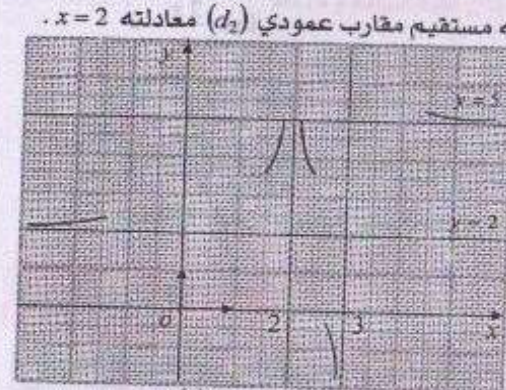 ه مستقيم مقارب عمودي (d₂) معادلته x = 2 .
y
y = 5
y = 2
o 2 3 x